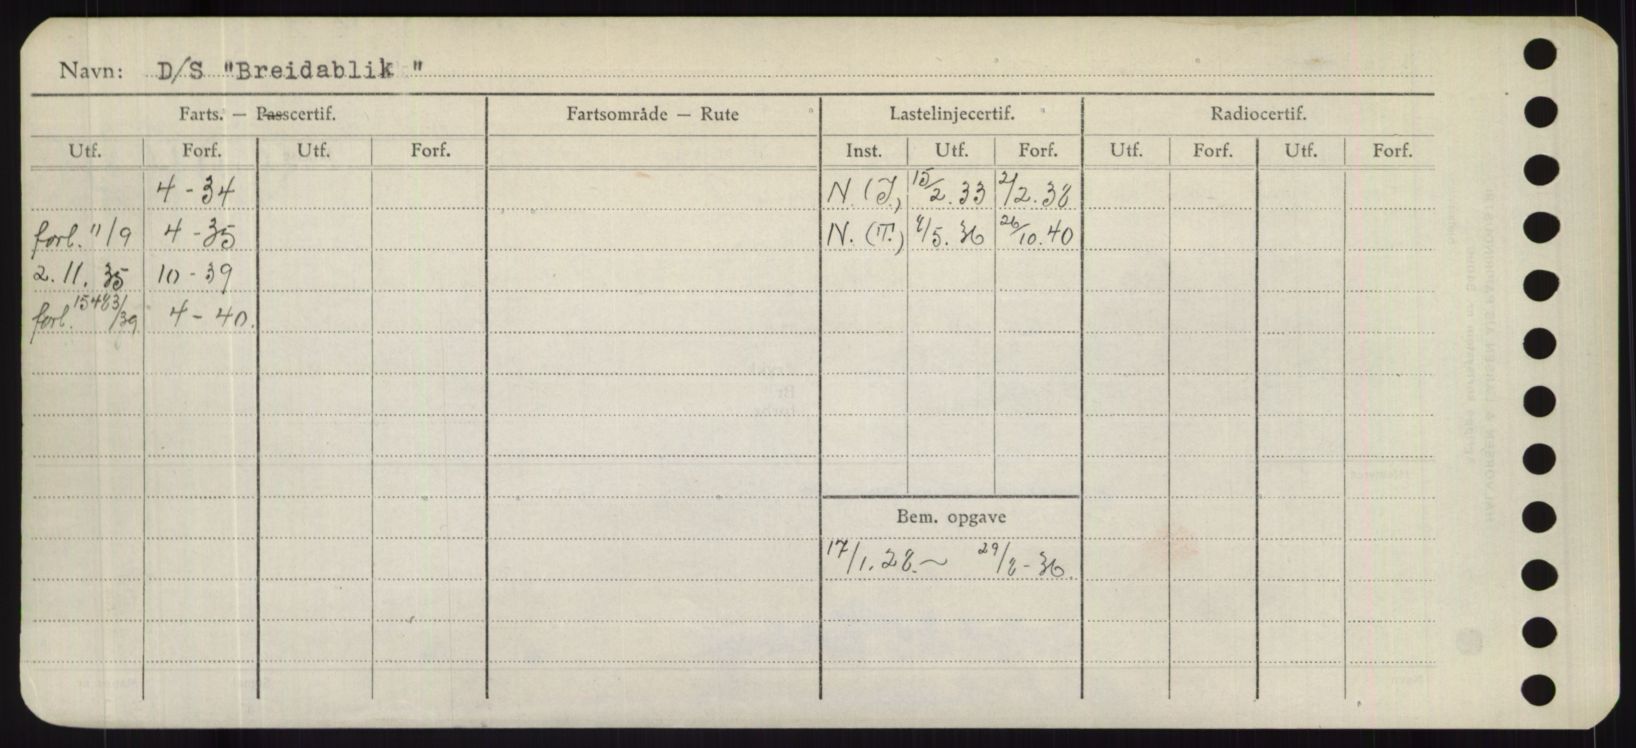 Navn: D/S "Breidablik "
Farts. — Passcertif. Fartsområde — Rute Lastelinjecertif. Radiocertif.
Utf. Forf. Utf. Forf. Inst. Utf. Forf. Utf. Forf. Utf. Forf.
4 - 34 N. (T.) 15/2. 33 2/2. 38
forl. 11/9 4 - 35 N. (T.) 8/5. 36 26/10. 40
2. 11. 35 10 - 39
forl. 15483/39 4 - 40.
Bem. opgave
17/1. 28. ~ 29/8 - 36.